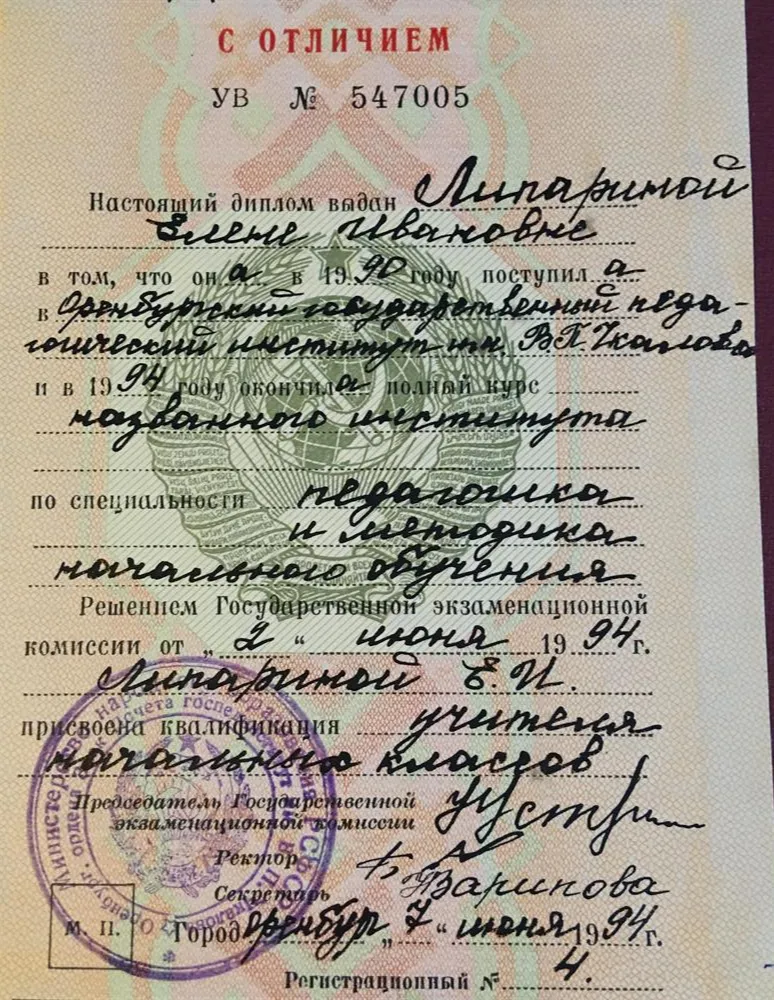 С ОТЛИЧИЕМ
УВ № 547005
Настоящий диплом выдан Липариной
Елене Ивановне
в том, что она в 1990 году поступила
в Оренбургский государственный педа-
гогический институт им. В.П. Чкалова
и в 1994 году окончила полный курс
названного института
по специальности педагогика
и методика
начального обучения
Решением Государственной экзаменационной
комиссии от „2“ июня 1994 г.
Липариной Е.И.
присвоена квалификация учителя
начальных классов
Председатель Государственной
экзаменационной комиссии
Ректор
Секретарь Баринова
М. П.
Город Оренбург „7“ июня 1994 г.
Регистрационный № 4.